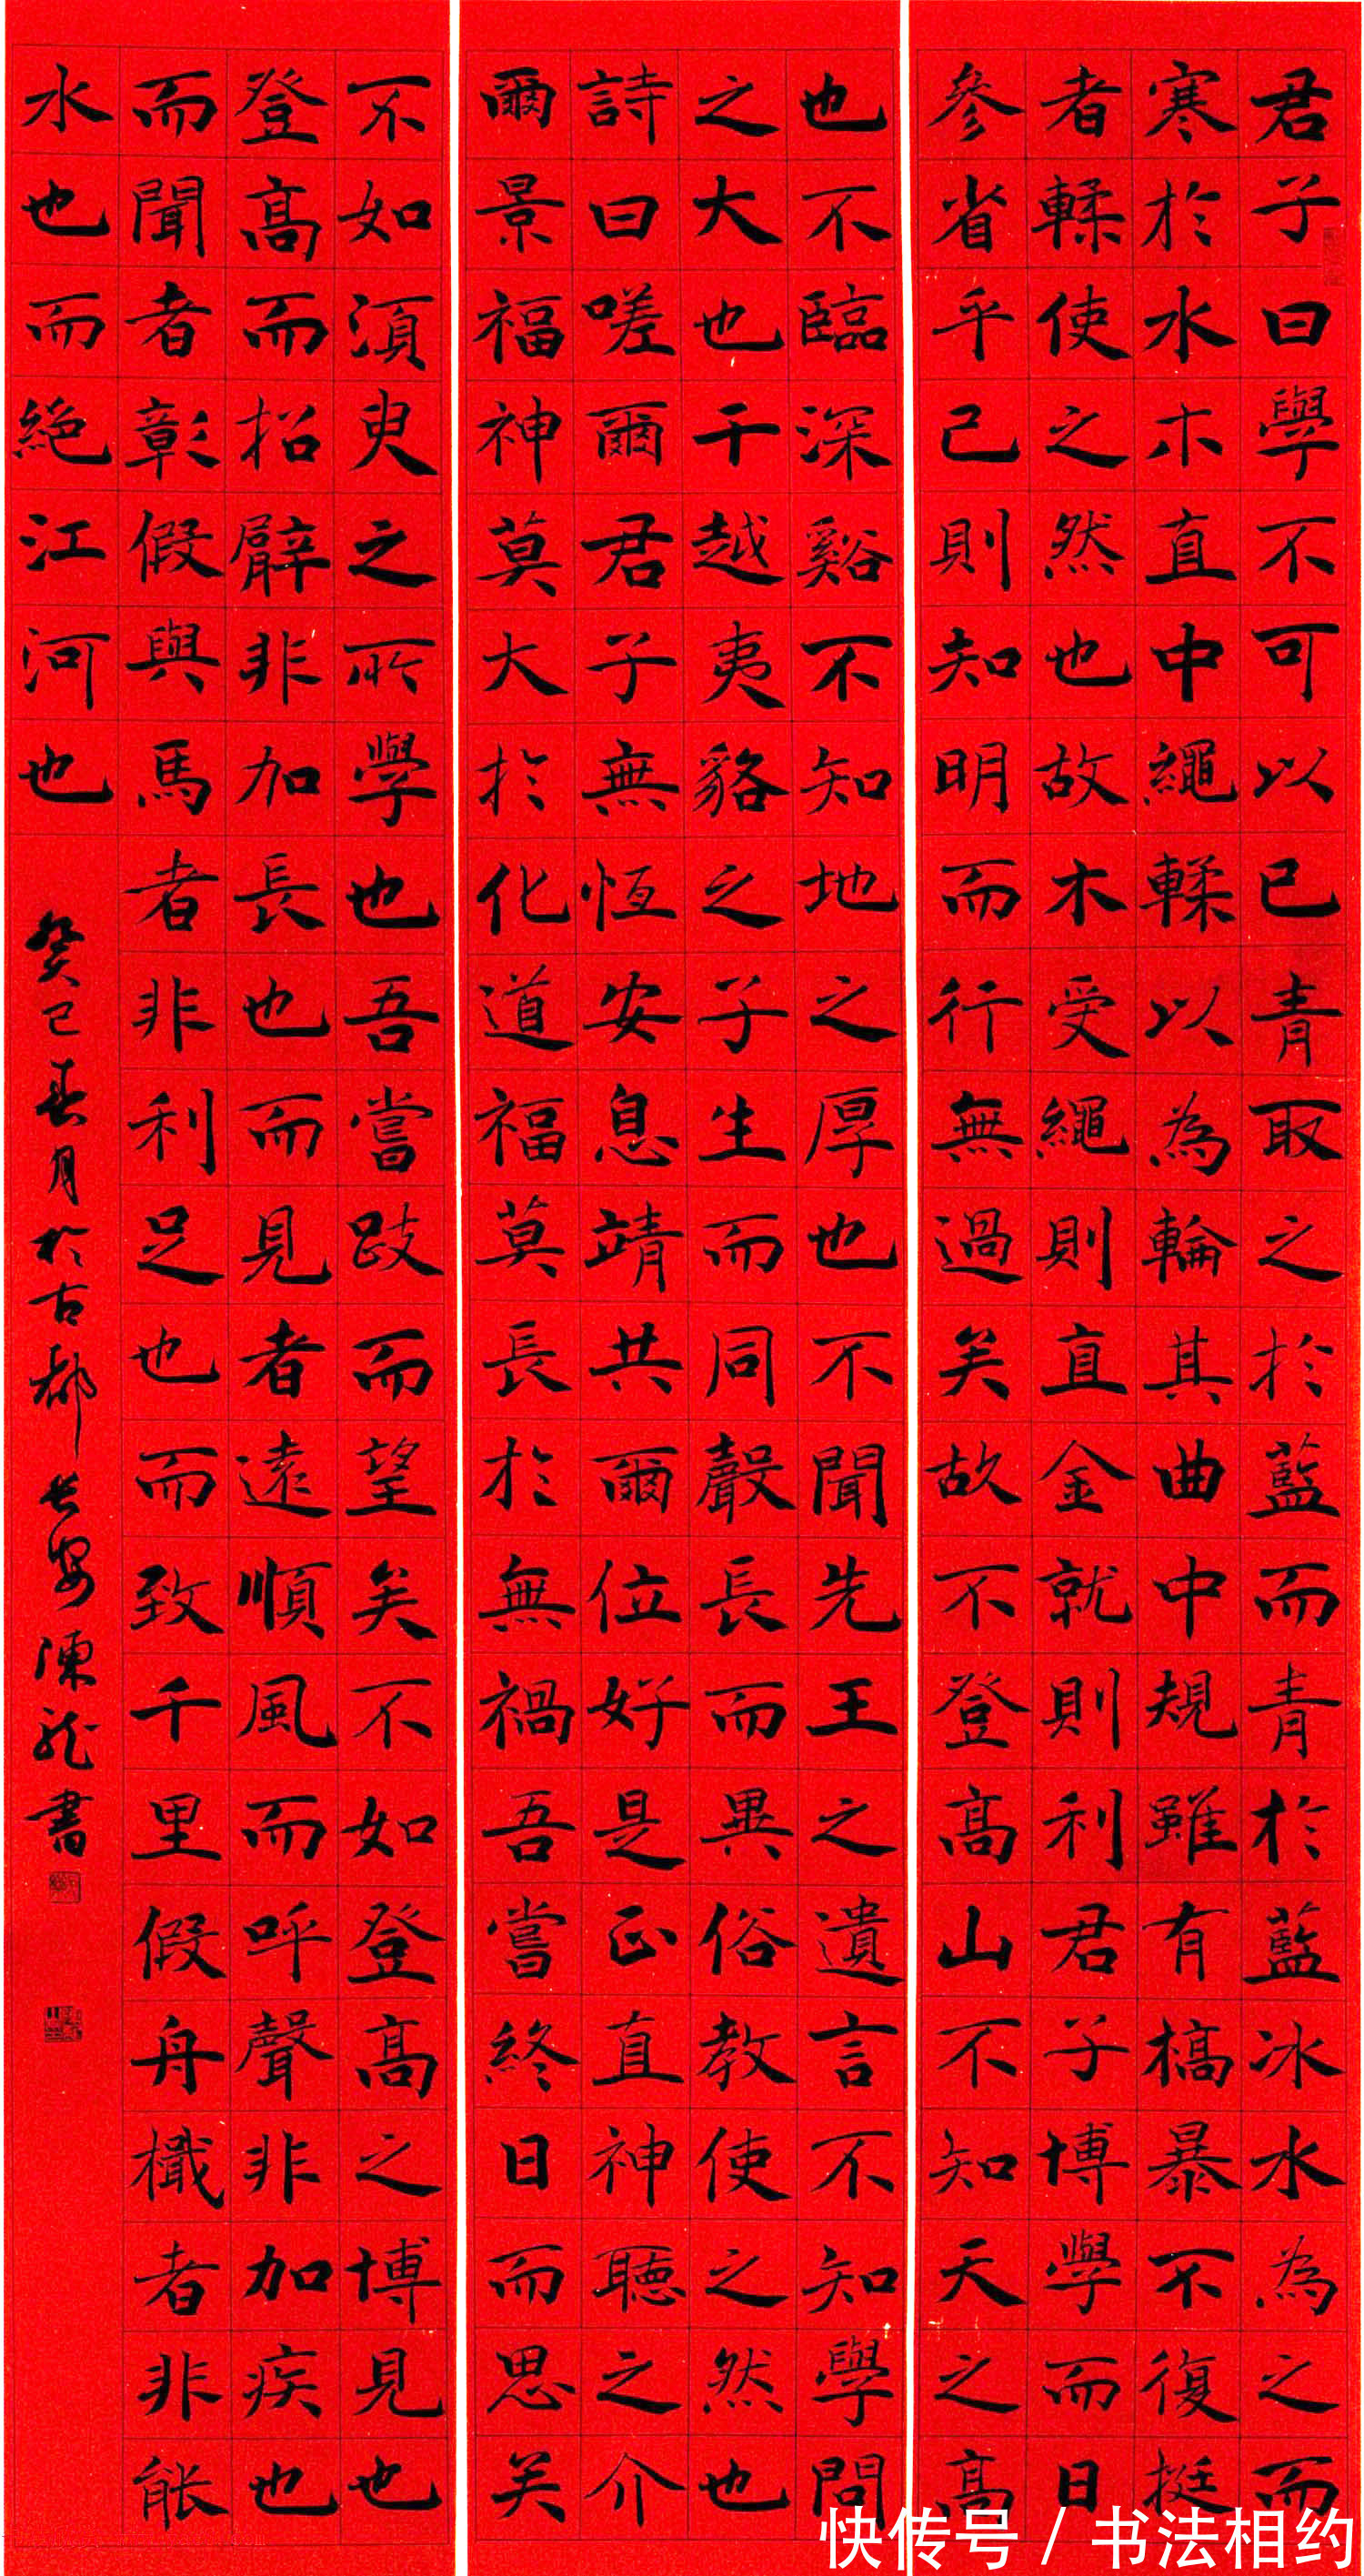 君子曰學不可以已青取之於藍而青於藍冰水為之而
寒於水木直中繩輮以為輪其曲中規雖有槁暴不復挺
者輮使之然也故木受繩則直金就則利君子博學而日
參省乎己則知明而行無過矣故不登髙山不知天之髙
也不臨深谿不知地之厚也不聞先王之遺言不知學問
之大也干越夷貉之子生而同聲長而異俗教使之然也
詩曰嗟爾君子無恆安息靖共爾位好是正直神聽之介
爾景福神莫大於化道福莫長於無禍吾嘗終日而思矣
不如須臾之所學也吾嘗跂而望矣不如登髙之博見也
登髙而招臂非加長也而見者遠順風而呼聲非加疾也
而聞者彰假與馬者非利足也而致千里假舟檝者非能
水也而絕江河也
癸巳春月於古都長安陳龍書
快传号 / 书法相约